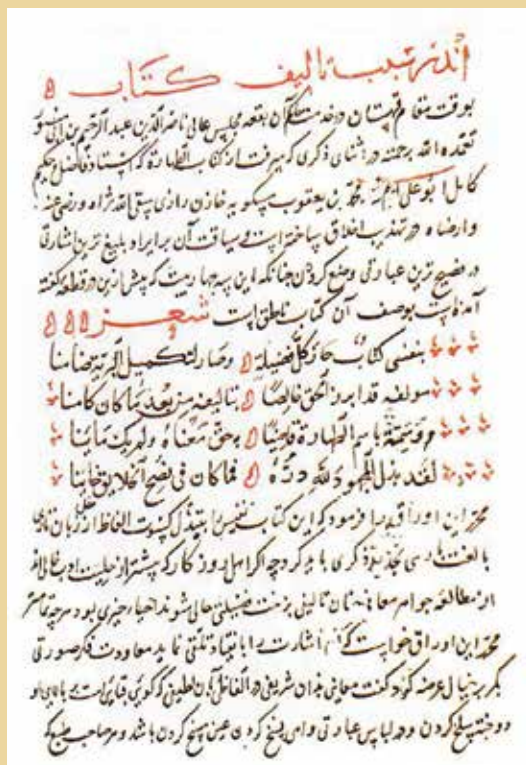 اندر سبب تالیف کتاب
بوقت مقام قهستان در خدمت حاکم آن بقعه مجلس عالی ناصر الدین عبد الرحیم بن ابی منصور
تغمده الله برحمته در اثنای ذکری که میرفت از کتاب الطهارة که استاد فاضل و حکیم
کامل ابو علی احمد بن محمد بن یعقوب مسکویه خازن رازی سقی الله ثراه و رضی عنه
و ارضاه در تهذیب اخلاق ساخته است و سیاقت آن بر ایراد بلیغ ترین اشارتی
در فصیح ترین عبارتی وضع کرده چنانکه این سه چهار بیت که پیش ازین در قطعه گفته
آمده است بوصف آن کتاب ناطق است شعر
بنفسی کتاب حاز کل فضیلة وصار لتکمیل البریة ضامنا
مولفه قد ابرز الحق خالصا بتالیفه من بعد ما کان کامنا
ووسمه باسم الطهارة قاضیا به حق معناه ولم یک ماینا
لقد بذل المجهود لله دره فما کان فی نصح الخلایق خاینا
محرر این اوراق را فرمود که این کتاب نفیس را بتبدیل کسوت الفاظ از زبان تازی
بالغت پارسی تجدید ذکری باید کرد چه اگر اهل روزگار که بیشتر از حلیت ادب خالی‌اند
از مطالعه جواهر معانی چنان تالیفی بزینت فضیلتی حالی شوند احیاء خیری بود هرچه تمامتر
محرر این اوراق خواست که اشارت را بانقیاد تلقی نماید معاودت فکر صورتی
بکر بر خیال عرضه کرد و گفت معانی بدان شریفی از الفاظی بدان لطیفی که گویی قبایی است بر بالای او
دوخته سلخ کردن و در لباس عبارتی واهی نسخ کردن عین مسخ کردن باشد و هر صاحب طبع که